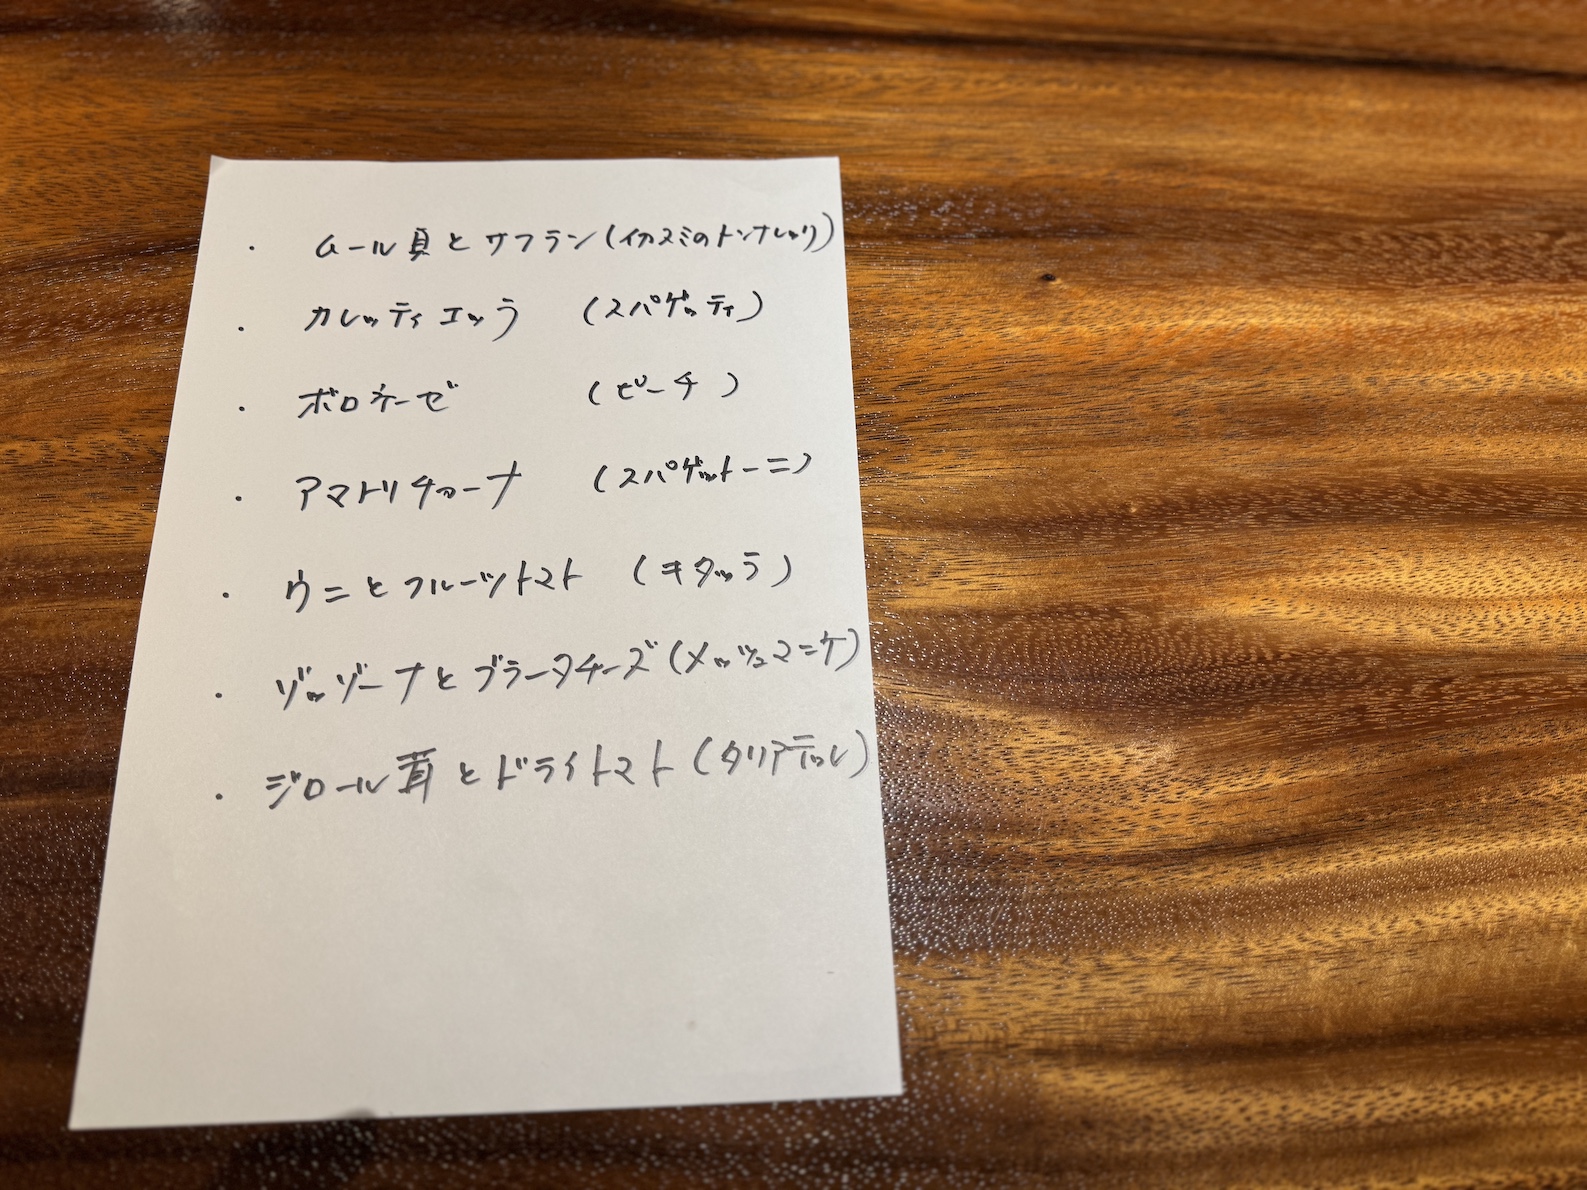 ・ ムール貝とサフラン(イカスミのトンナレッリ)
・ カレッティエッラ (スパゲッティ)
・ ボロネーゼ (ピーチ)
・ アマトリチャーナ (スパゲットーニ)
・ ウニとフルーツトマト (キタッラ)
・ ゾッゾーナとブラータチーズ(メッツェマニケ)
・ ジロール茸とドライトマト(タリアテッレ)